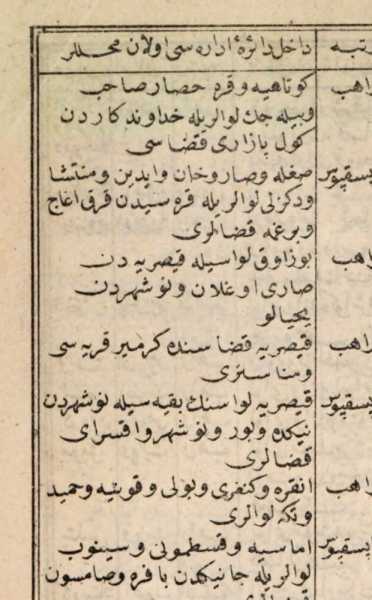 رتبه داخل دائرهٔ اداره سی اولان محللر
راهب كوتاهيه وقره حصار صاحب
وبيله جك لوالريله خداوندكاردن
كول پازاری قضاسی
پيسقپوس صغله وصاروخان وايدين ومنتشا
ودكزلی لوالريله قره سيدن قرق اغاج
وبرغمه قضالری
راهب بوزاوق لواسيله قيصريه دن
صاری اوغلان ونوشهردن
يحيالو
راهب قيصريه قضاسنده كرمير قريه سی
ومناستری
پيسقپوس قيصريه لواسنك بقيه سيله نوشهردن
نيكده وبور ونوشهر واقسرای
قضالری
راهب انقره وكنغری وبولی وقونيه وحميد
وتكه لوالری
پيسقپوس اماسيه وقسطمونی وسينوب
لوالريله جانيكدن بافره وصامسون